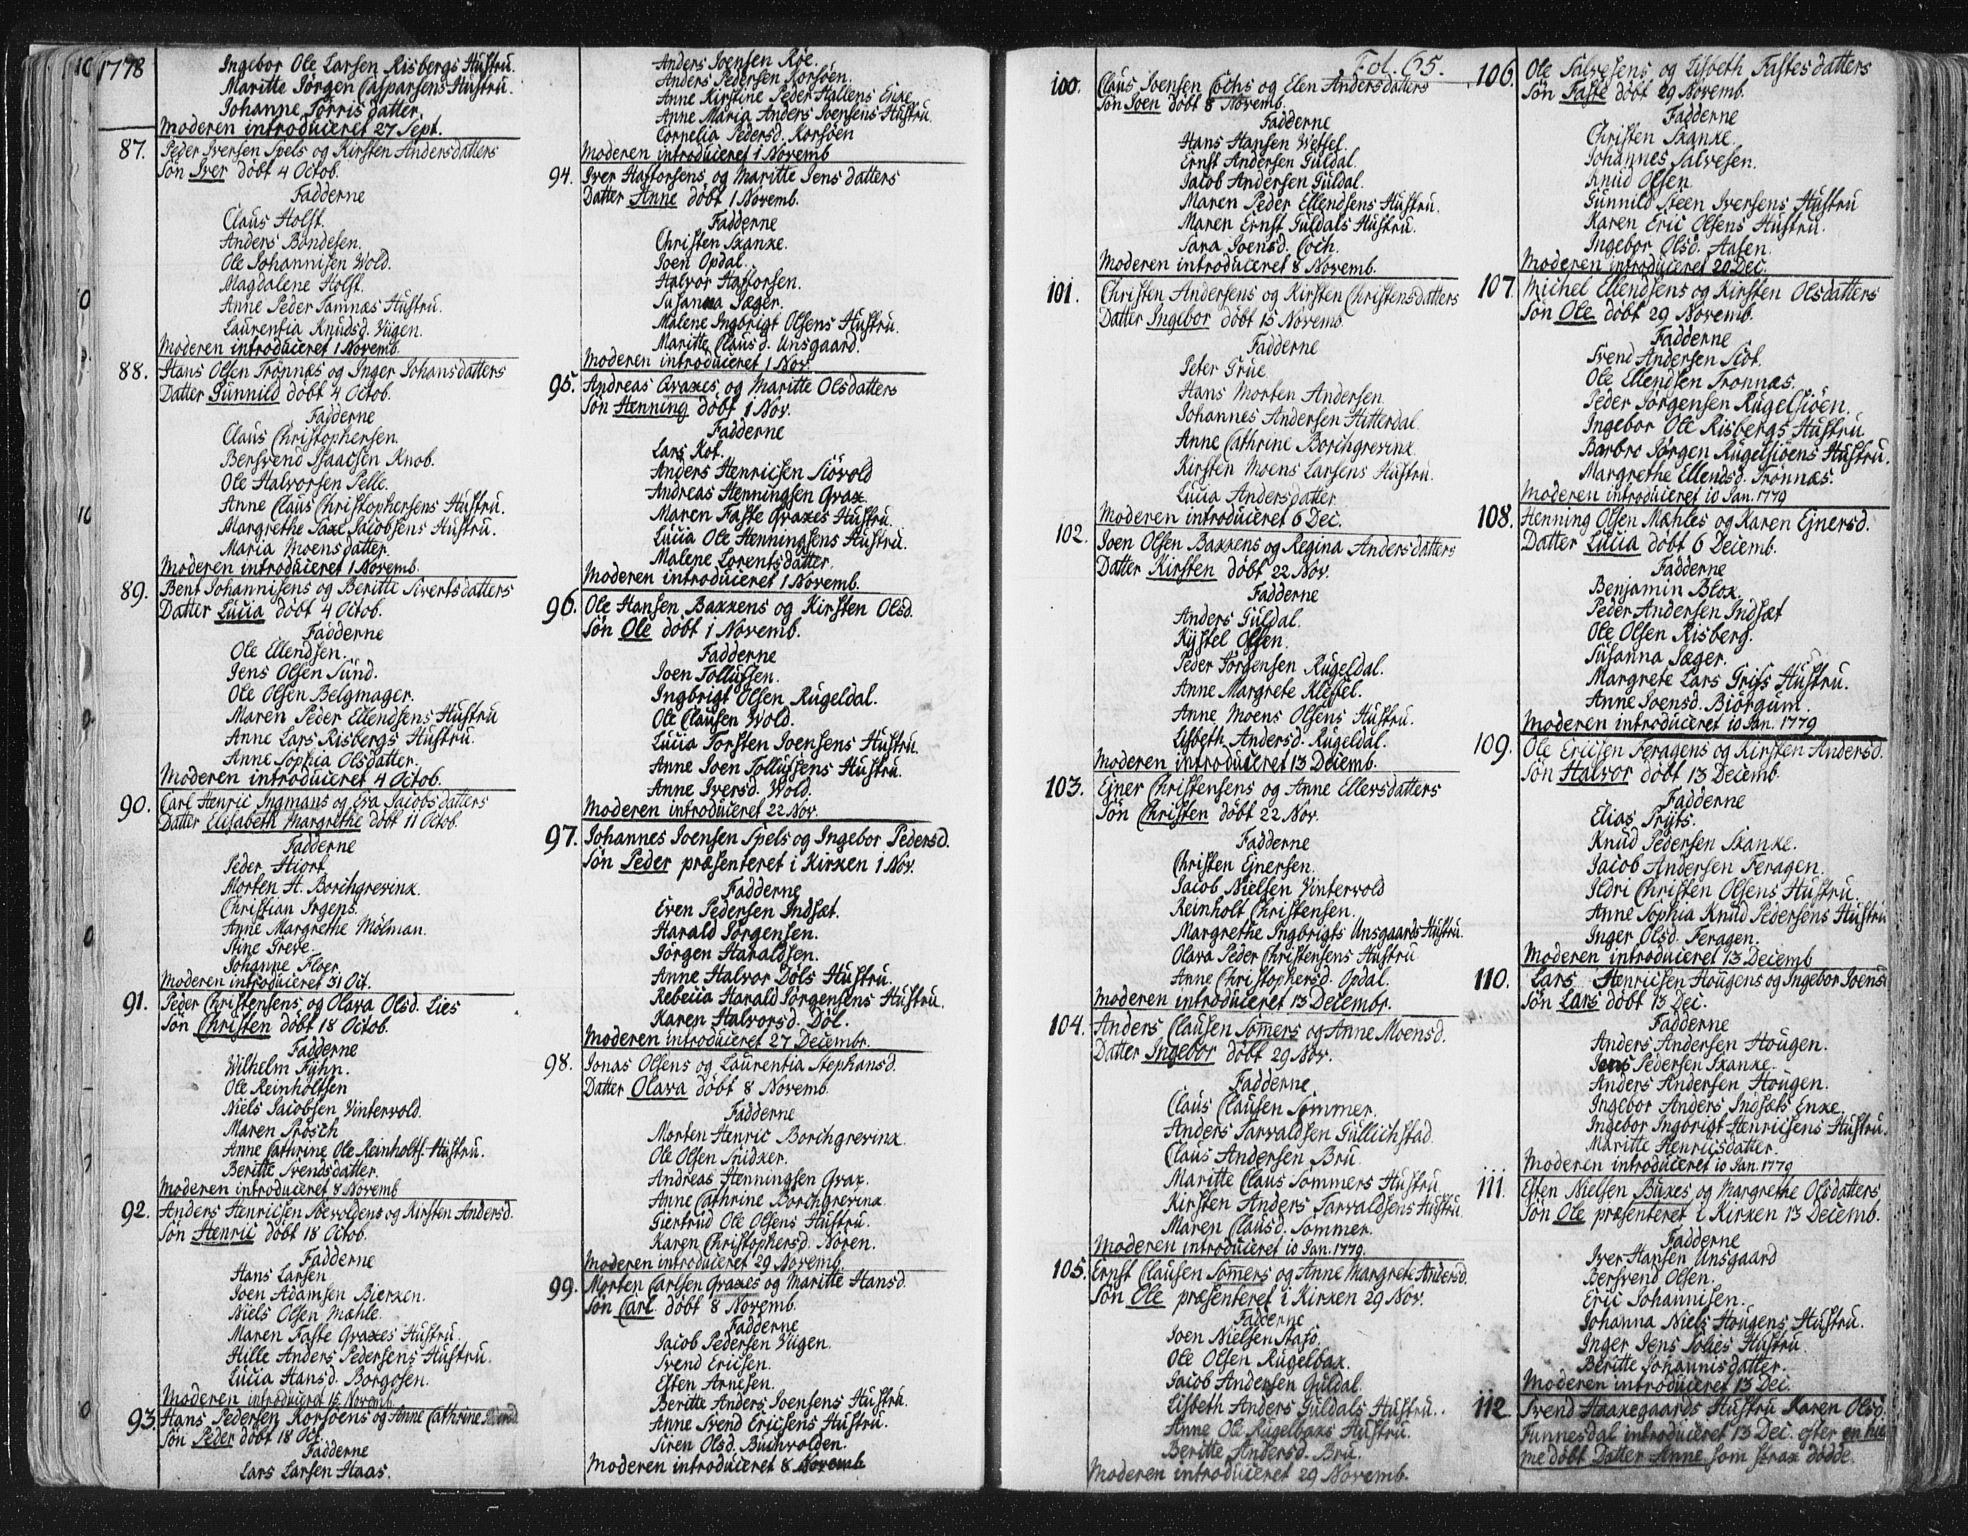 1778
Ingebor Ole Larsen Risbergs Hustru.
Maritte Jørgen Caspersens Hustru.
Johanne Torris datter.
Moderen introduceret 27 Sept.
87. Peder Iversen Spels og Kirsten Andersdatters
Søn Iver døbt 4 Octob.
Fadderne
Claus Holst.
Anders Bondesen.
Ole Johannisen Wold.
Magdalene Holst.
Anne Peder Tamnæs Hustru.
Laurentia Knudsd. Viigen.
Moderen introduceret 1 Novemb.
88. Hans Olsen Trønnæs og Inger Johansdatters
Datter Gunnild døbt 4 Octob.
Fadderne
Claus Christophersen.
Bersvend Isaacsen Knob.
Ole Halvorsen Pelle.
Anne Claus Christophersens Hustru.
Margrethe Saxe Jacobsens Hustru.
Maria Moensdatter.
Moderen introduceret 1 Novemb.
89. Bent Johannisens og Beritte Sivertsdatters
Datter Lucia døbt 4 Octob.
Fadderne
Ole Ellendsen.
Jens Olsen Sund.
Ole Olsen Belgmager.
Maren Peder Ellendsens Hustru
Anne Lars Risbergs Hustru.
Anne Sophia Olsdatter.
Moderen introduceret 4 Octob.
90. Carl Henric Ingmans og Eva Jacobsdatters
Datter Elisabeth Margrethe døbt 11 Octob.
Fadderne
Peder Hiort
Morten H. Borchgrevink.
Christian Irgens.
Anne Margrethe Mølman.
Stine Greve.
Johanne Floer.
Moderen introduceret 31 Oct.
91. Peder Christensens og Olava Olsd. Lies
Søn Christen døbt 18 Octob.
Fadderne
Wilhelm Fyhn.
Ole Reinholtsen
Niels Jacobsen Vintervold.
Maren Prosch
Anne Cathrine Ole Reinholts. Hustru.
Beritte Svendsdatter.
Moderen introduceret 8 Novemb
92. Anders Henricsen Siøevoldens og Kirsten Andersd.
Søn Henric døbt 18 Octob.
Fadderne
Hans Larsen
Joen Adamsen Bierken.
Niels Olsen Mæhle.
Maren Faste Qvaxes Hustru.
Hille Anders Pedersens Hustru.
Lucia Hansd. Borgosen.
Moderen introduceret 15 Novemb.
93. Hans Pedersen Korsøens og Anne Cathrine
Søn Peder døbt 18 Oct.
Fadderne
Lars Larsen Haas.
Anders Joensen Røe.
Anders Pedersen Korsøen.
Anne Kirstine Peder Hallens Enke.
Anne Maria Anders Joensens Hustru.
Cornelia Pedersd. Korsøen
Moderen introduceret 1 Novemb
94. Iver Haftorsens og Maritte Jens datters
Datter Anne døbt 1 Novemb.
Fadderne
Christen Skanke.
Joen Opdal.
Halvor Haftorsen.
Susanna Jæger.
Malene Ingbrigt Olsens Hustru.
Maritte Claus d. Unsgaard.
Moderen introduceret 1 Nov.
95. Andreas Qvaxes og Maritte Olsdatters
Søn Henning døbt 1 Nov.
Fadderne
Lars Kot.
Anders Henricsen Siøvold
Andreas Henningsen Qvax.
Maren Faste Qvaxes Hustru.
Lucia Ole Henningsens Hustru.
Malene Lorentsdatter.
Moderen introduceret 1 Novemb.
96. Ole Hansen Bakkens og Kirsten Olsd.
Søn Ole døbt 1 Novemb.
Fadderne
Joen Tollufsen.
Ingbrigt Olsen Rugeldal.
Ole Clausen Wold.
Lucia Torsten Joensens Hustru.
Anne Joen Tollufsens Hustru.
Anne Iversd. Wold.
Moderen introduceret 22 Nov.
97. Johannes Joensen Spels og Ingebor Pedersd.
Søn Peder præsenteret i Kirken 1 Nov.
Fadderne
Even Pedersen Indset.
Harald Jørgensen.
Jørgen Haraldsen.
Anne Halvor Døls Hustru.
Rebecca Harald Jørgensens Hustru.
Karen Halvorsd. Døl.
Moderen introduceret 27 Decembr.
98. Jonas Olsens og Laurentia Stephansd.
Datter Olava døbt 8 Novemb.
Fadderne
Morten Henric Borchgrevink.
Ole Olsen Snidker.
Andreas Henningsen Qvax.
Anne Cathrine Borchgrevink
Giertrud Ole Olsens Hustru.
Karen Christophersd. Noren.
Moderen introduceret 29 Novemb.
99. Morten Carlsen Qvaxes og Maritte Hansd.
Søn Carl døbt 8 Novemb.
Fadderne
Jacob Pedersen Viigen.
Svend Ericsen.
Esten Arnesen.
Beritte Anders Joensens Hustru.
Anne Svend Ericsens Hustru.
Siren Olsd. Buchvolden.
Moderen introduceret 8 Novemb
Fol. 65.
100. Claus Joensen Cochs og Elen Andersdatters
Søn Joen døbt 8 Novemb.
Fadderne
Hans Hansen Wessel.
Ernst Andersen Guldal.
Jacob Andersen Guldal.
Maren Peder Ellendsens Hustru.
Maren Ernst Guldals Hustru.
Sara Joensd. Coch.
Moderen introduceret 8 Novemb.
101. Christen Andersens og Kirsten Christensdatters
Datter Ingebor døbt 15 Novemb.
Fadderne
Peter Grue
Hans Morten Andersen.
Johannes Andersen Hitterdal.
Anne Cathrine Borchgrevink.
Kirsten Moens Larsens Hustru.
Lucia Andersdatter
Moderen introduceret 6 Dec.
102. Joen Olsen Bakkens og Regina Andersdatters
Datter Kirsten døbt 22 Nov.
Fadderne
Anders Guldal.
Kystel Olsen.
Peder Jørgensen Rugeldal.
Anne Margrete Klefsel.
Anne Moens Olsens Hustru.
Lisbeth Andersd. Rugeldal.
Moderen introduceret 13 Decemb.
103. Ejner Christensens og Anne Ellersdatters
Søn Christen døbt 22 Nov.
Fadderne
Christen Ejnersen.
Jacob Nielsen Vintervold
Reinholt Christensen.
Margrethe Ingbrigts Unsgaards Hustru.
Olava Peder Christensens Hustru
Anne Christophersd. Opdal.
Moderen introduceret 13 Decembr.
104. Anders Clausen Somers og Anne Moensd.
Datter Ingebor døbt 29 Nov.
Fadderne
Claus Clausen Sommer.
Anders Tarvaldsen Gullichstad.
Claus Andersen Bru.
Maritte Claus Sommers Hustru
Kirsten Anders Tarvaldsens Hustru.
Maren Clausd. Sommer.
Moderen introduceret 10 Jan. 1779.
105. Ernst Clausen Somers og Anne Margrete Andersd.
Søn Ole præsenteret i Kirken 29 Nov.
Fadderne
Joen Nielsen Stafs.
Ole Olsen Rugelbak.
Jacob Andersen Guldal.
Lisbeth Anders Guldals Hustru.
Anne Ole Rugelbaks Hustru.
Beritte Andersd. Bru.
Moderen introduceret 29 Novemb.
106. Ole Salvesens og Lisbeth Fastesdatters
Søn Faste døbt 29 Novemb.
Fadderne
Christen Skanke.
Johannes Salvesen.
Knud Olsen.
Gunnild Steen Iversens Hustru
Karen Eric Olsens Hustru.
Ingebor Olsd. Aasen.
Moderen introduceret 20 Dec.
107. Michel Ellendsens og Kirsten Olsdatters
Søn Ole døbt 29 Novemb.
Fadderne
Svend Andersen Siot.
Ole Ellendsen Trønnæs.
Peder Jørgensen Rugelsiøen.
Ingebor Ole Risbergs Hustru
Barbro Jørgen Rugelsiøens Hustru.
Margrethe Ellendsd. Trønnæs.
Moderen introduceret 10 Jan. 1779
108. Henning Olsen Mæhles og Karen Ejnersd.
Datter Lucia døbt 6 Decemb.
Fadderne
Benjamin Blox.
Peder Andersen Indsæt
Ole Olsen Risberg.
Susanna Jæger.
Margrete Lars Griis Hustru.
Anne Joensd. Biørgum.
Moderen introduceret 10 Jan. 1779
109. Ole Ericsen Feragens og Kirsten Andersd.
Søn Halvor døbt 13 Decemb.
Fadderne
Elias Tryts.
Knud Pedersen Skanke.
Jacob Andersen Feragen.
Ildri Christen Olsens Hustru
Anne Sophia Knud Pedersens Hustru
Inger Olsd. Feragen.
Moderen introduceret 13 Decemb
110. Lars Henricsen Hougens og Ingebor Joens
Søn Lars døbt 13 Dec.
Fadderne
Anders Andersen Hougen.
Jens Pedersen Skanke.
Anders Andersen Hougen.
Ingebor Anders Indsæts Enke.
Ingebor Ingbrigt Henricsens Hustru.
Maritte Henricsdatter.
Moderen introduceret 10 Jan. 1779
111. Esten Nielsen Buxes og Margrethe Olsdatters
Søn Ole præsenteret i Kirken 13 Decemb.
Fadderne
Iver Hansen Unsgaard
Bersvend Olsen.
Eric Johannisen.
Johanna Niels Hougens Hustru.
Inger Jens Solies Hustru
Beritte Johannisdatter.
Moderen introduceret 13 Dec.
112 Svend Haakegaards Hustru Karen Olsd.
Funnesdal introduceret 13 Dec. efter en hie
me døbt Datter Anne som strax døde.